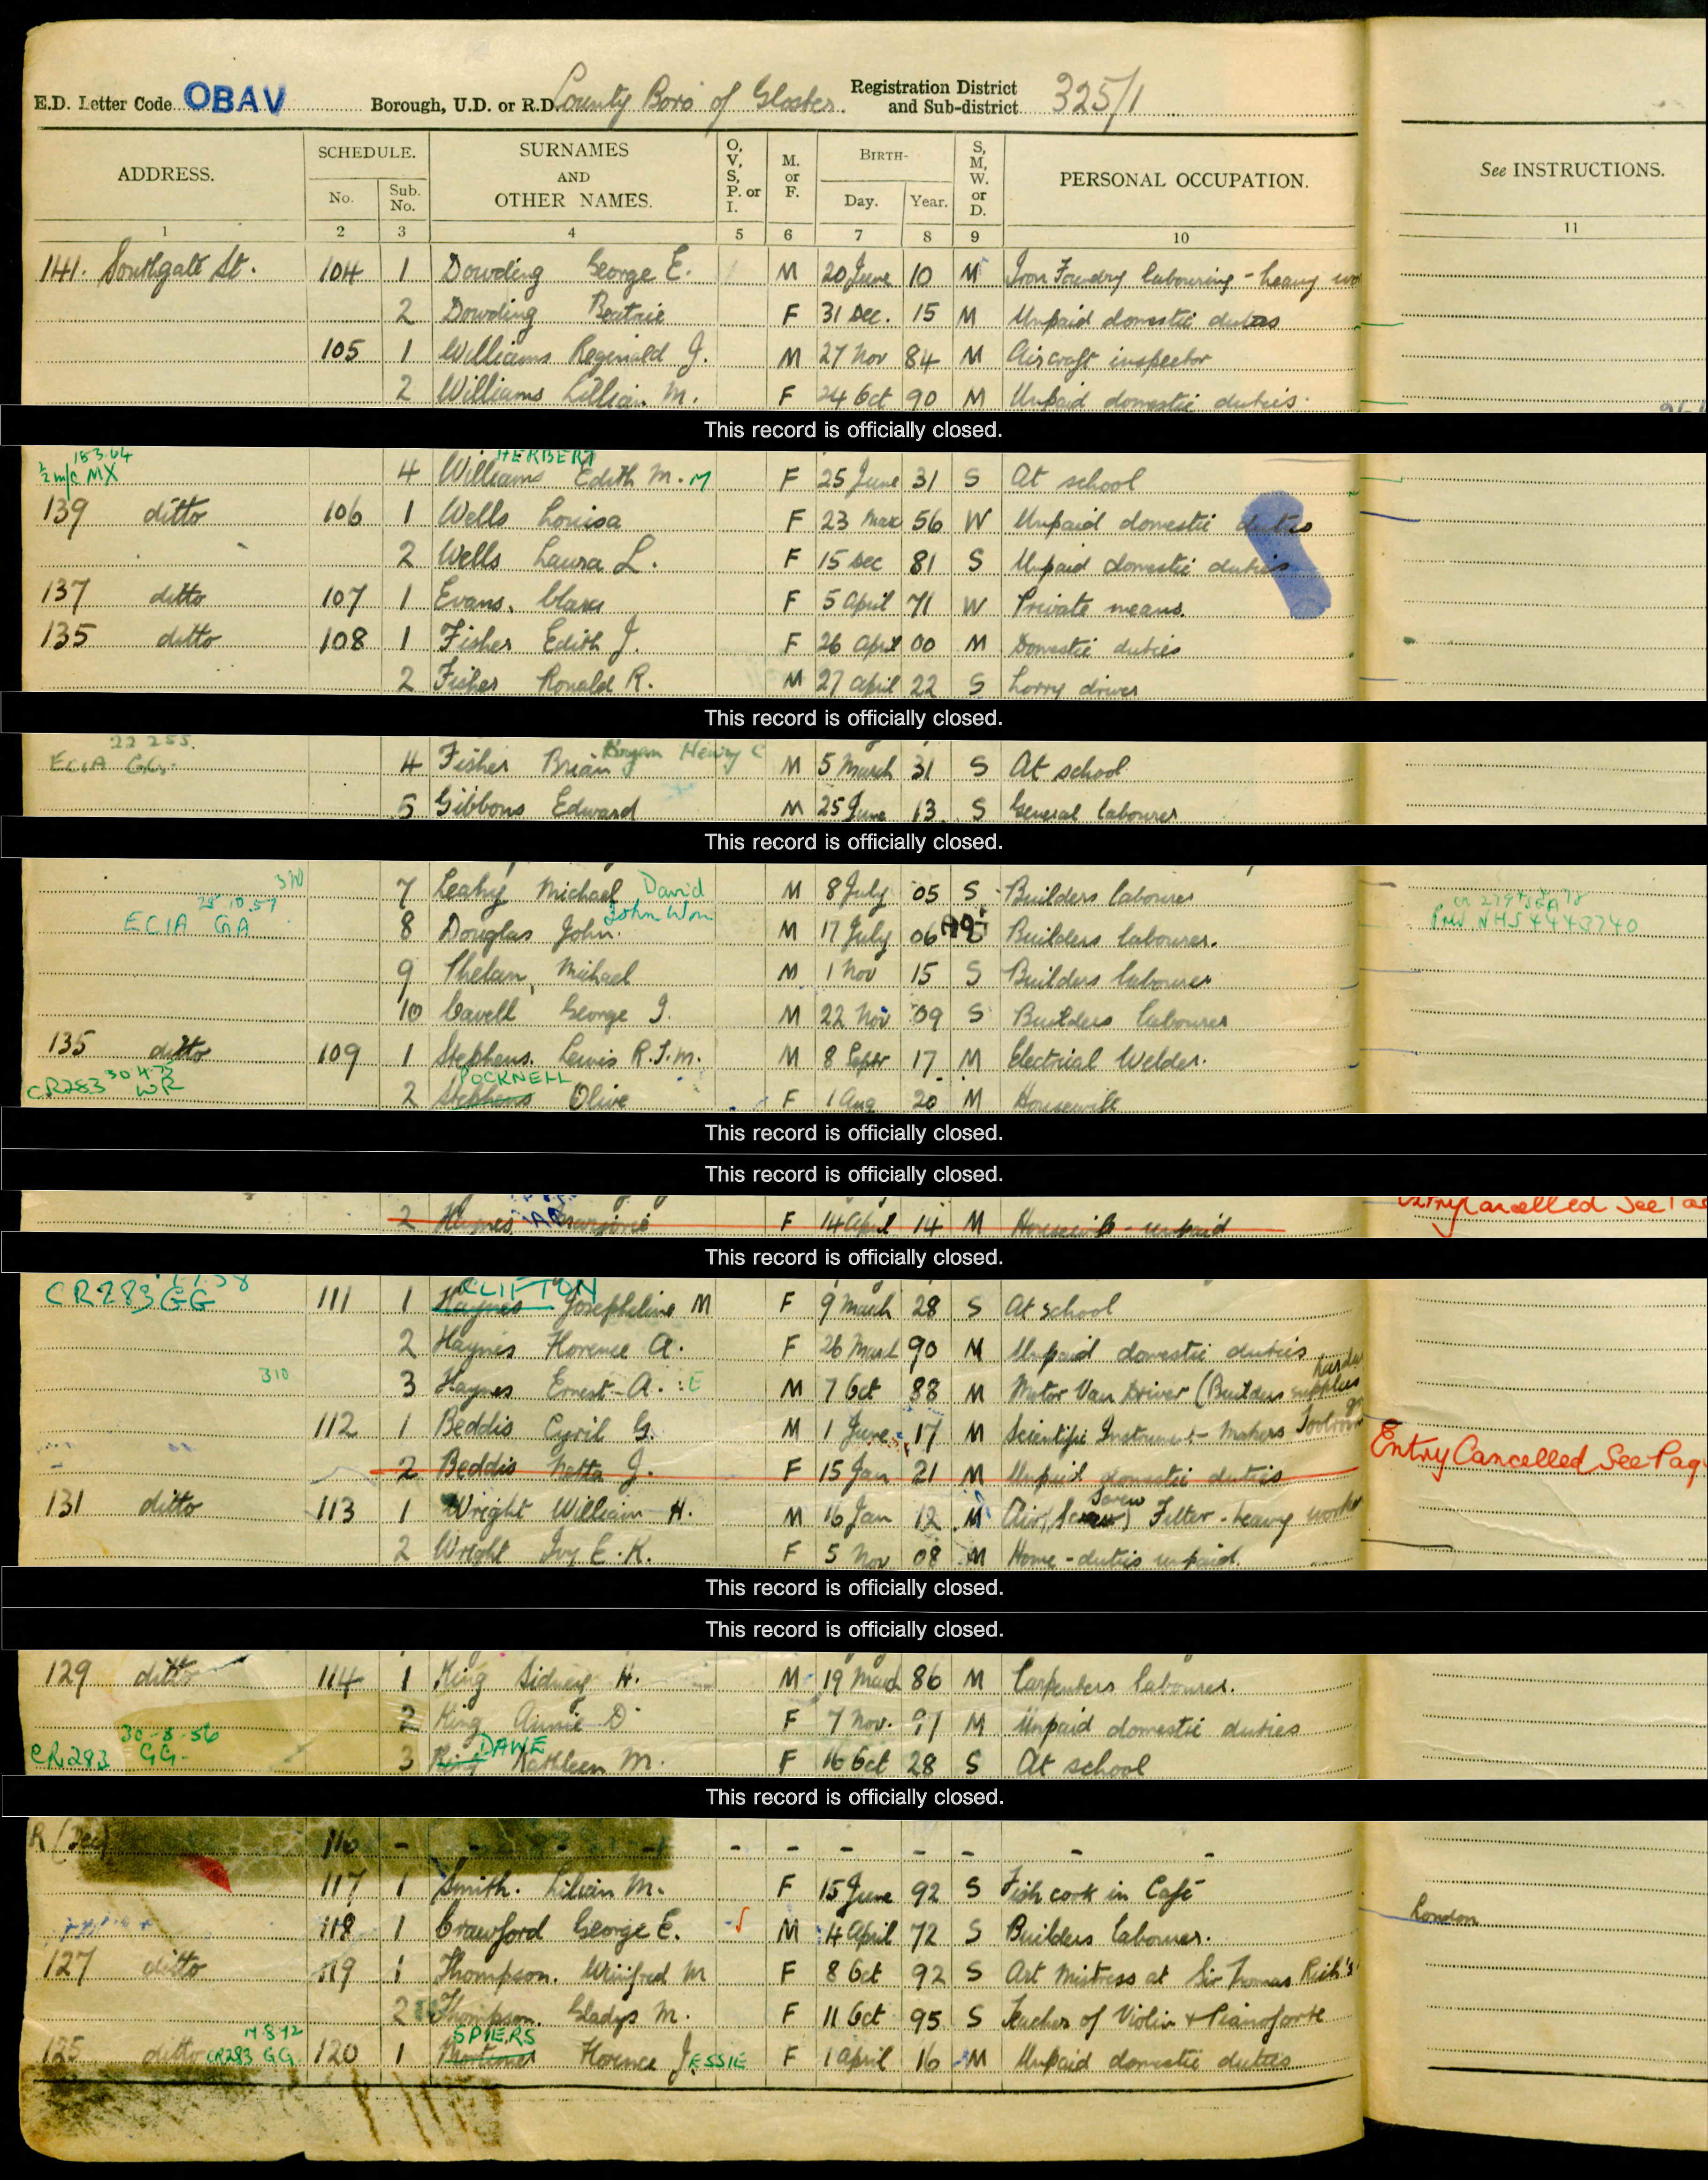 E.D. Letter Code OBAV Borough, U.D. or R.D. County Boro of Gloster. Registration District and Sub-district 325/1
ADDRESS. SCHEDULE. No. Sub. No. SURNAMES AND OTHER NAMES. O, V, S, P. or I. M. or F. BIRTH- Day. Year. S, M, W. or D. PERSONAL OCCUPATION. See INSTRUCTIONS.
1 2 3 4 5 6 7 8 9 10 11
141. Southgate St. 104 1 Dowding George E. M 20 June 10 M Iron Foundry labouring - heavy
2 Dowding Beatrice F 31 Dec. 15 M Unpaid domestic duties
105 1 Williams Reginald J. M 27 Nov 84 M Aircraft inspector
2 Williams Lillian M. F 24 Oct 90 M Unpaid domestic duties.
This record is officially closed.
HERBERT
½ m/c MX 4 Williams Edith M. M F 25 June 31 S At school
139 ditto 106 1 Wells Louisa F 23 Mar 56 W Unpaid domestic duties
2 Wells Laura L. F 15 Dec 81 S Unpaid domestic duties
137 ditto 107 1 Evans. Clara F 5 April 71 W Private means.
135 ditto 108 1 Fisher Edith J. F 26 April 00 M Domestic duties
2 Fisher Ronald R. M 27 April 22 S Lorry driver
This record is officially closed.
22 2 55.
ECIA GG. 4 Fisher Brian Bryan Henry C M 5 March 31 S At school
5 Gibbons Edward M 25 June 13 S General labourer
This record is officially closed.
7 Leahy Michael David M 8 July 05 S Builders labourer
28.10.57 John Wm
ECIA GA 8 Douglas John. M 17 July 06 Builders labourer. NHS 4443740
9 Phelan, Michael M 1 Nov 15 S Builders labourer
10 Cavell George J. M 22 Nov 09 S Builders labourer
135 ditto 109 1 Stephens. Lewis R.J.M. M 8 Septr 17 M Electrical Welder.
30 4.75 POCKNELL
CR283 WR 2 Stephens Olive F 1 Aug 20 M Housewife
This record is officially closed.
This record is officially closed.
2 Haynes Marjorie F 14 April 14 M Housewife - unpaid Entry Cancelled See Pa
This record is officially closed.
CLIFTON
CR283 GG 111 1 Haynes Josephine M F 9 March 28 S At school
2 Haynes Florence A. F 26 March 90 M Unpaid domestic duties
310 3 Haynes Ernest A. :E M 7 Oct 88 M Motor Van Driver (Builders supplies
112 1 Beddis Cyril G. M 1 June 17 M Scientific Instrument Makers
2 Beddis Netta J. F 15 Jan 21 M Unpaid domestic duties Entry Cancelled See Pag
131 ditto 113 1 Wright William H. M 16 Jan 12 M Air, Screw Fitter - heavy worker
2 Wright Ivy E.K. F 5 Nov 08 M Home - duties unpaid.
This record is officially closed.
This record is officially closed.
129 ditto 114 1 King Sidney H. M 19 March 86 M Carpenters labourer.
2 King Annie D F 7 Nov. 91 M Unpaid domestic duties
30-8-56 DAWE
CR.283 GG- 3 King Kathleen M. F 16 Oct 28 S At school
This record is officially closed.
116 - - - - - - - - - -
117 1 Smith. Lilian M. F 15 June 92 S Fish cook in Café
118 1 Crawford George E. M 4 April 72 S Builders labourer. London
127 ditto 119 1 Thompson. Winifred M F 8 Oct 92 S Art Mistress at Sir Thomas Rich's
2 Thompson. Gladys M. F 11 Oct 95 S Teacher of Violin & Pianoforte
SPIERS
125 ditto CR283 GG. 120 1 Mortimer Florence JESSIE F 1 April 16 M Unpaid domestic duties